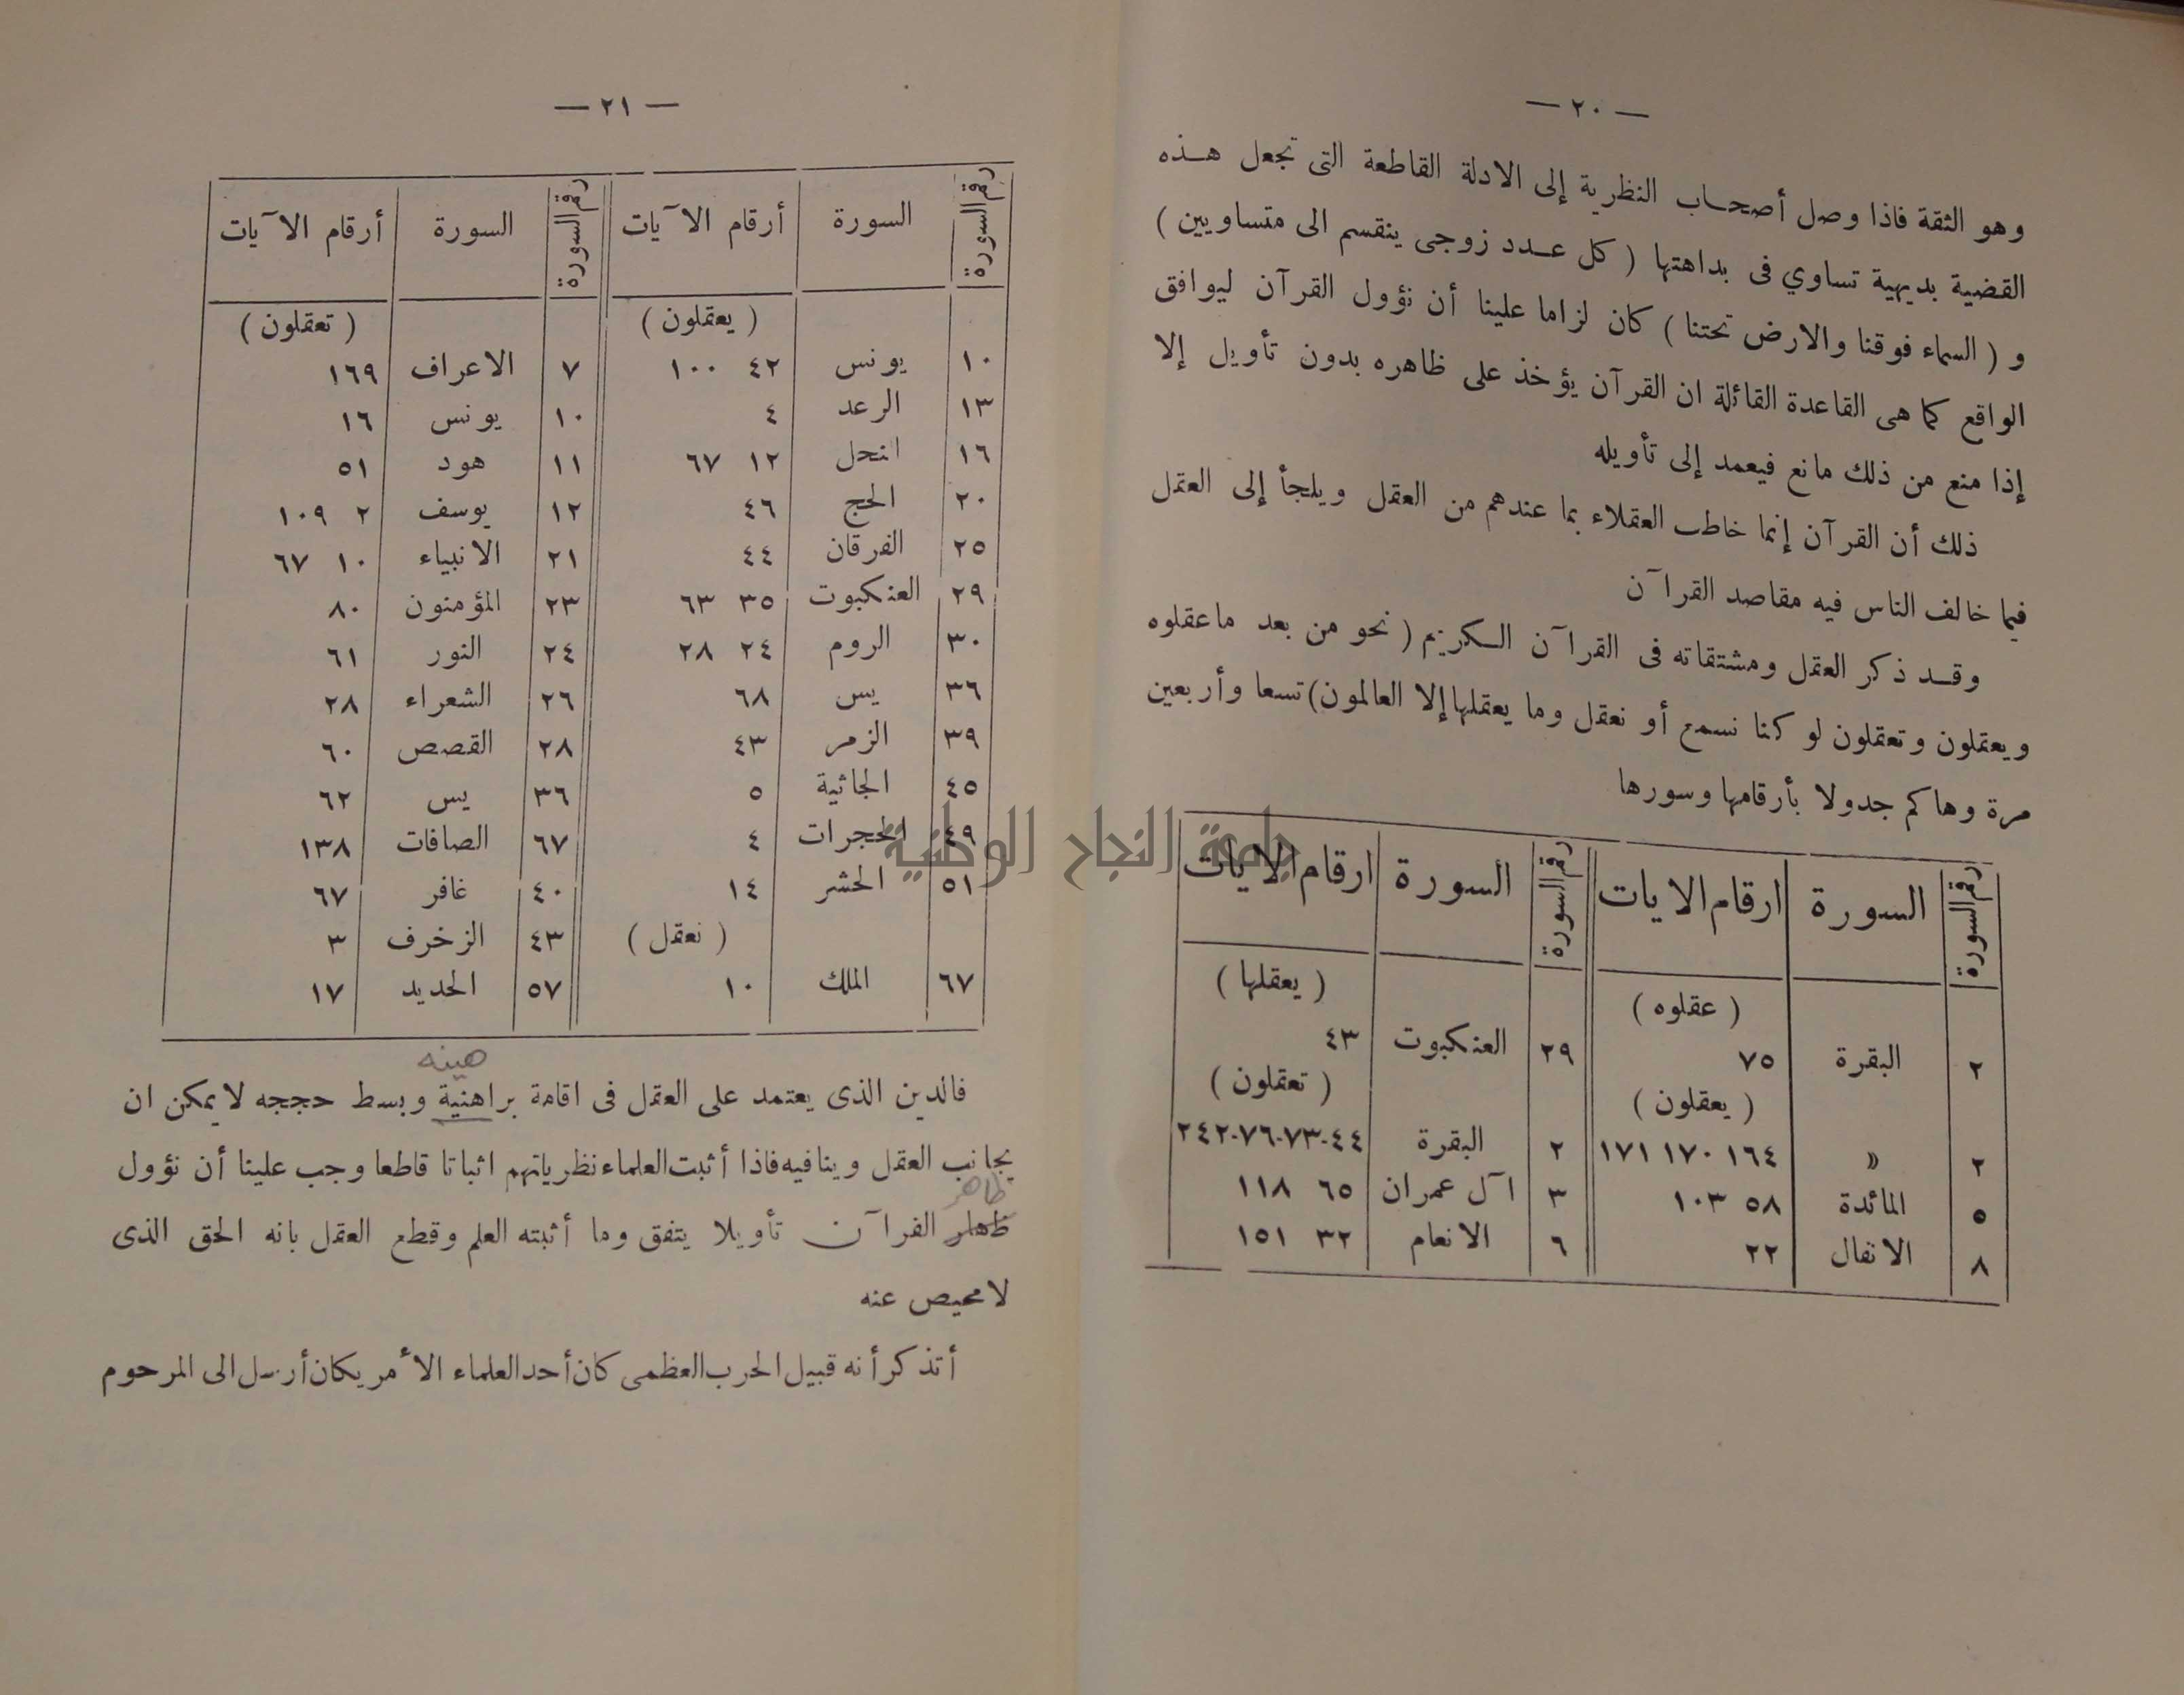 — ٢٠ —
وهو الثقة فاذا وصل أصحاب النظرية إلى الادلة القاطعة التى تجعل هذه
القضية بديهية تساوي فى بداهتها ( كل عدد زوجى ينقسم الى متساويين )
و ( السماء فوقنا والارض تحتنا ) كان لزاما علينا أن نؤول القرآن ليوافق
الواقع كما هى القاعدة القائلة ان القرآن يؤخذ على ظاهره بدون تأويل إلا
إذا منع من ذلك مانع فيعمد إلى تأويله
ذلك أن القرآن إنما خاطب العقلاء بما عندهم من العقل ويلجأ إلى العقل
فيما خالف الناس فيه مقاصد القرآن
وقد ذكر العقل ومشتقاته فى القرآن الكريم ( نحو من بعد ماعقلوه
ويعقلون وتعقلون لو كنا نسمع أو نعقل وما يعقلها إلا العالمون ) تسعا وأربعين
مرة وهاكم جدولا بأرقامها وسورها
رقم السورة السورة ارقام الايات رقم السورة السورة ارقام الايات
( عقلوه ) ( يعقلها )
٢ البقرة ٧٥ ٢٩ العنكبوت ٤٣
( يعقلون ) ( تعقلون )
٢ » ١٦٤ ١٧٠ ١٧١ ٢ البقرة ٤٤-٧٣-٧٦-٢٤٢
٥ المائدة ٥٨ ١٠٣ ٣ آل عمران ٦٥ ١١٨
٨ الانفال ٢٢ ٦ الانعام ٣٢ ١٥١
— ٢١ —
رقم السورة السورة أرقام الآيات رقم السورة السورة أرقام الآيات
( يعقلون ) ( تعقلون )
١٠ يونس ٤٢ ١٠٠ ٧ الاعراف ١٦٩
١٣ الرعد ٤ ١٠ يونس ١٦
١٦ النحل ١٢ ٦٧ ١١ هود ٥١
٢٠ الحج ٤٦ ١٢ يوسف ٢ ١٠٩
٢٥ الفرقان ٤٤ ٢١ الانبياء ١٠ ٦٧
٢٩ العنكبوت ٣٥ ٦٣ ٢٣ المؤمنون ٨٠
٣٠ الروم ٢٤ ٢٨ ٢٤ النور ٦١
٣٦ يس ٦٨ ٢٦ الشعراء ٢٨
٣٩ الزمر ٤٣ ٢٨ القصص ٦٠
٤٥ الجاثية ٥ ٣٦ يس ٦٢
٤٩ الحجرات ٤ ٦٧ الصافات ١٣٨
٥١ الحشر ١٤ ٤٠ غافر ٦٧
( نعقل ) ٤٣ الزخرف ٣
٦٧ الملك ١٠ ٥٧ الحديد ١٧
هينه
فالدين الذى يعتمد على العقل فى اقامة براهنية وبسط حججه لا يمكن ان
يجانب العقل وينافيه فاذا أثبت العلماء نظرياتهم اثباتا قاطعا وجب علينا أن نؤول
ظاهر
ظهار القرآن تأويلا يتفق وما أثبته العلم وقطع العقل بانه الحق الذى
لا محيص عنه
أتذكر أنه قبيل الحرب العظمى كان أحد العلماء الأمريكان أرسل الى المرحوم
جامعة النجاح الوطنية